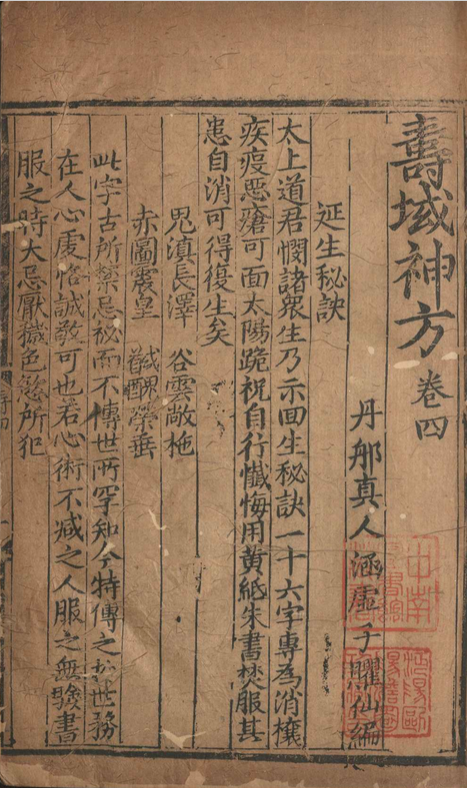 壽域神方 卷四
丹邱真人涵虛子臞仙編
延生秘訣
太上道君憫諸衆生乃示回生秘訣一十六字專為消穰
疾疫惡瘡可面太陽跪祝自行懺悔用黄紙朱書焚服其
患自消可得復生矣
鬼滇長澤 谷雲敞柂
赤圖震皇 榮垂
此字古所禁忌秘而不傳世所罕知今特傳之於世務
在人心虔恪誠敬可也若心術不减之人服之無驗書
服之時大忌厭穢色慾所犯